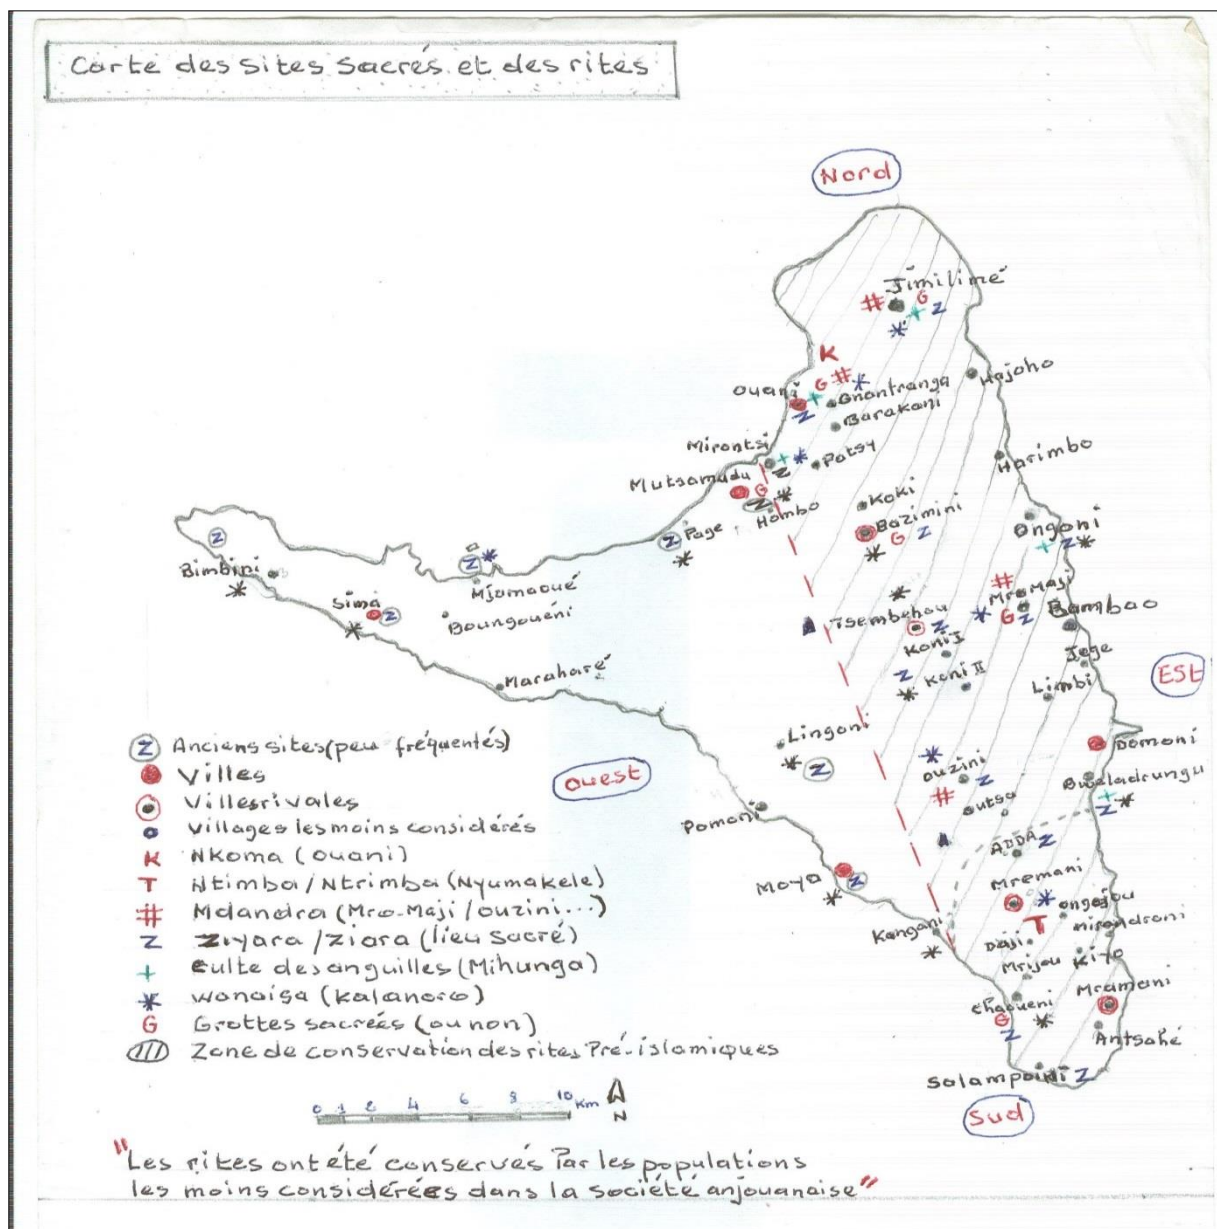 Carte des Sites Sacrés et des rites
Nord
Jimilimé
# G + Z *
K
G # *
Ouani + Gnantranga
Z
Hajoho
Barakani
Mirontsi + *
Z
Patsy
Harimbo
Mutsamudu G
Z *
Hombo
Koki
Bazimini
G Z
*
Page
Z
*
Ongoni
+ Z *
Z
Bimbini
*
Z *
Mjamaoué
Sima Z
*
Boungouéni
Maraharé
*
Tsembehou
Z
#
Mro Maji
* G Z
Bambao
Koni I
Z Koni II
*
Jege
Limbi
Est
Lingoni
* Z
Domoni
*
Ouzini
Z
#
Outsa
Bweladrungu
+
Z *
Ouest
Pomoni
ADDA Z
Moya Z
*
Mremani
*
Ongojou
T
Daji
nirondroni
Kangani
*
Mrijou
Kiyo
Chaoueni
G
Z
*
Mramani
Antsahé
Z
Sud
Z Anciens sites (peu fréquentés)
Villes
Villes rivales
Villages les moins considérés
K Nkoma (Ouani)
T Ntimba / Ntrimba (Nyumakele)
# Mdandra (Mro-Maji / Ouzini...)
Z Ziyara / ziara (lieu Sacré)
+ Culte des anguilles (Mihunga)
* Wanaisa (Kalanoro)
G Grottes sacrées (ou non)
Zone de conservation des rites Pré-islamiques
0 1 2 4 6 8 10 Km
N
"Les rites ont été conservés Par les populations
les moins considérées dans la société anjouanaise"